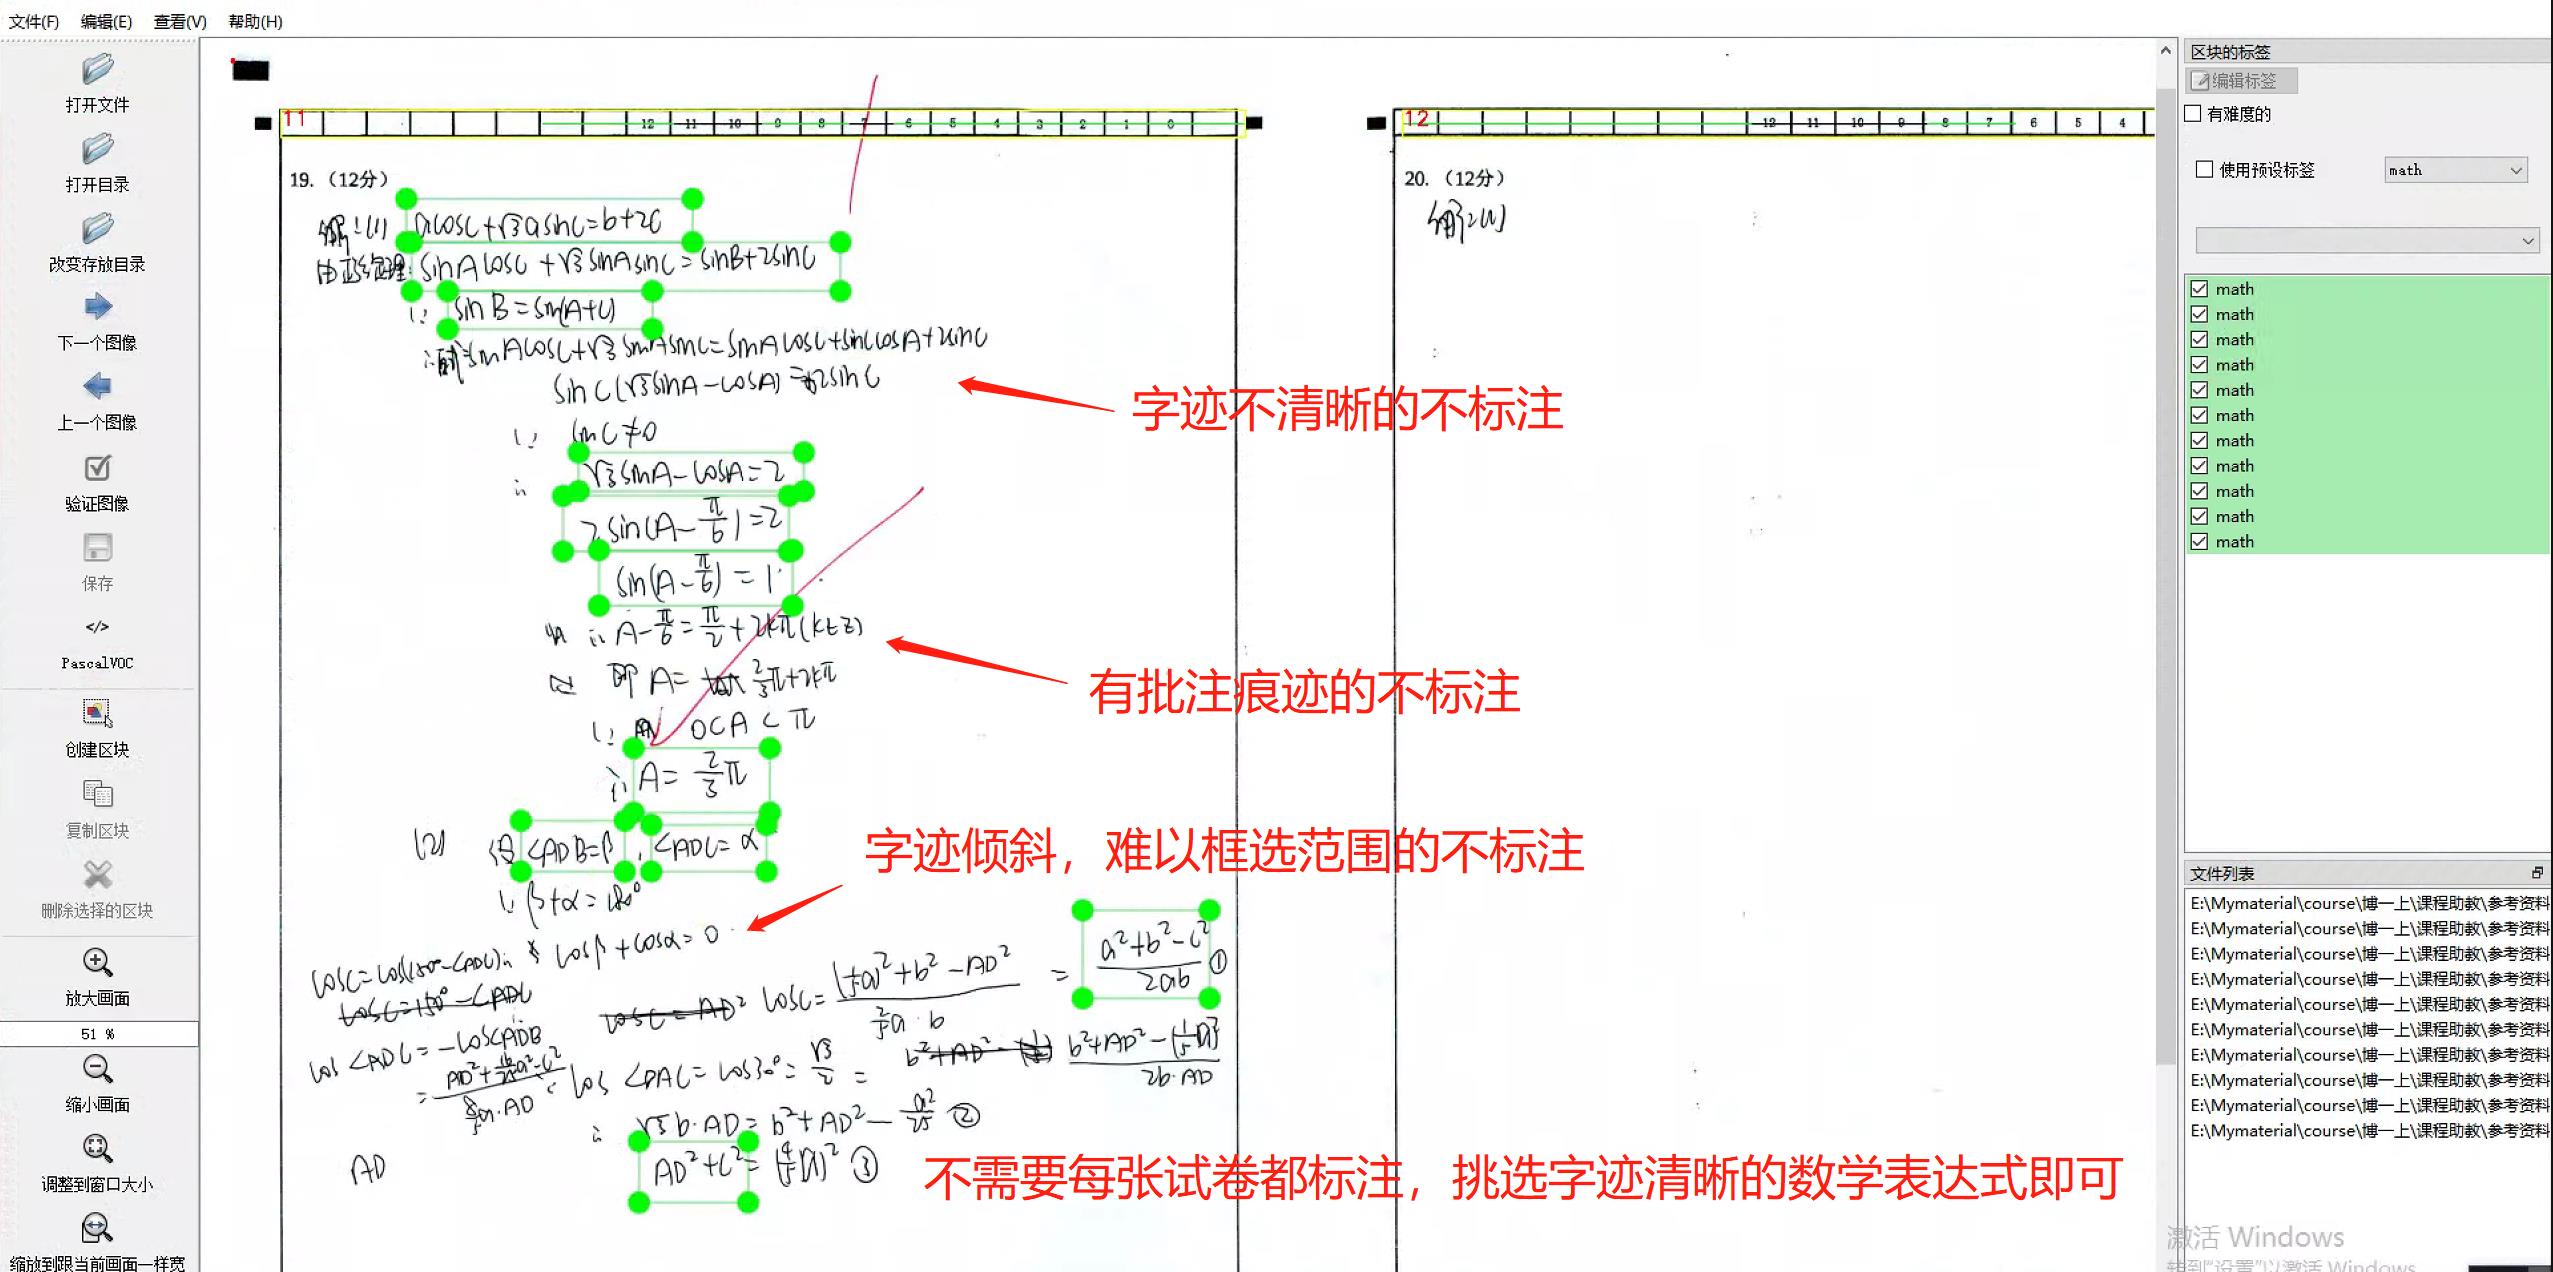 文件(F) 编辑(E) 查看(V) 帮助(H)
打开文件
打开目录
改变存放目录
下一个图像
上一个图像
验证图像
保存
</>
PascalVOC
创建区块
复制区块
删除选择的区块
放大画面
51 %
缩小画面
调整到窗口大小
缩放到跟当前画面一样宽
11
12 11 10 9 8 7 6 5 4 3 2 1 0
19. （12分）
解:(1) acosC+√3asinC=b+2c
由正弦定理: sinAcosC+√3sinAsinC=sinB+2sinC
∵ sinB=sin(A+C)
sinAcosC+√3sinAsinC=sinAcosC+sinCcosA+2sinC
sinC(√3sinA-cosA)=2sinC
字迹不清晰的不标注
∵ sinC≠0
∴ √3sinA-cosA=2
2sin(A-π/6)=2
sin(A-π/6)=1
∴ A-π/6=π/2+2kπ(k∈Z)
有批注痕迹的不标注
即 A= 2/3π+2kπ
∵ 0<A<π
∴ A=2/3π
(2) 设∠ADB=β, ∠ADC=α
字迹倾斜，难以框选范围的不标注
∵ β+α=180°
cosβ+cosα=0
cosC=((4/5a)²+b²-AD²)/ = (a²+b²-c²)/2ab ①
cos∠ADC=-cos∠ADB
cos∠DAC=cos30°=√3/2= (b²+AD²-(1/5a)²)/2b·AD
∴ √3b·AD=b²+AD²-a²/25 ②
AD
AD²+c²=(4/5a)² ③
不需要每张试卷都标注，挑选字迹清晰的数学表达式即可
12
12 11 10 9 8 7 6 5 4
20. （12分）
解:(1)
区块的标签
编辑标签
有难度的
使用预设标签 math
math
math
math
math
math
math
math
math
math
math
math
文件列表
E:\Mymaterial\course\博一上\课程助教\参考资料
E:\Mymaterial\course\博一上\课程助教\参考资料
E:\Mymaterial\course\博一上\课程助教\参考资料
E:\Mymaterial\course\博一上\课程助教\参考资料
E:\Mymaterial\course\博一上\课程助教\参考资料
E:\Mymaterial\course\博一上\课程助教\参考资料
E:\Mymaterial\course\博一上\课程助教\参考资料
E:\Mymaterial\course\博一上\课程助教\参考资料
E:\Mymaterial\course\博一上\课程助教\参考资料
E:\Mymaterial\course\博一上\课程助教\参考资料
激活 Windows
转到“设置”以激活 Windows